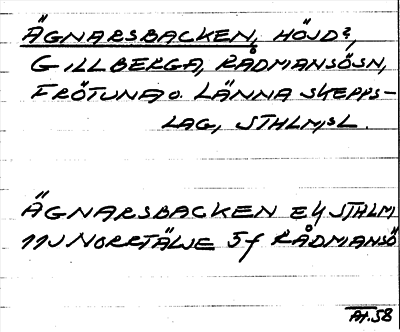 ÄGNARSBACKEN, HÖJD?,
GILLBERGA, RÅDMANSÖSN,
FRÖTUNA O. LÄNNA SKEPPS-
LAG, STHLMSL.
ÄGNARSBACKEN EK STHLM
11J NORRTÄLJE 5f RÅDMANSÖ
At.58